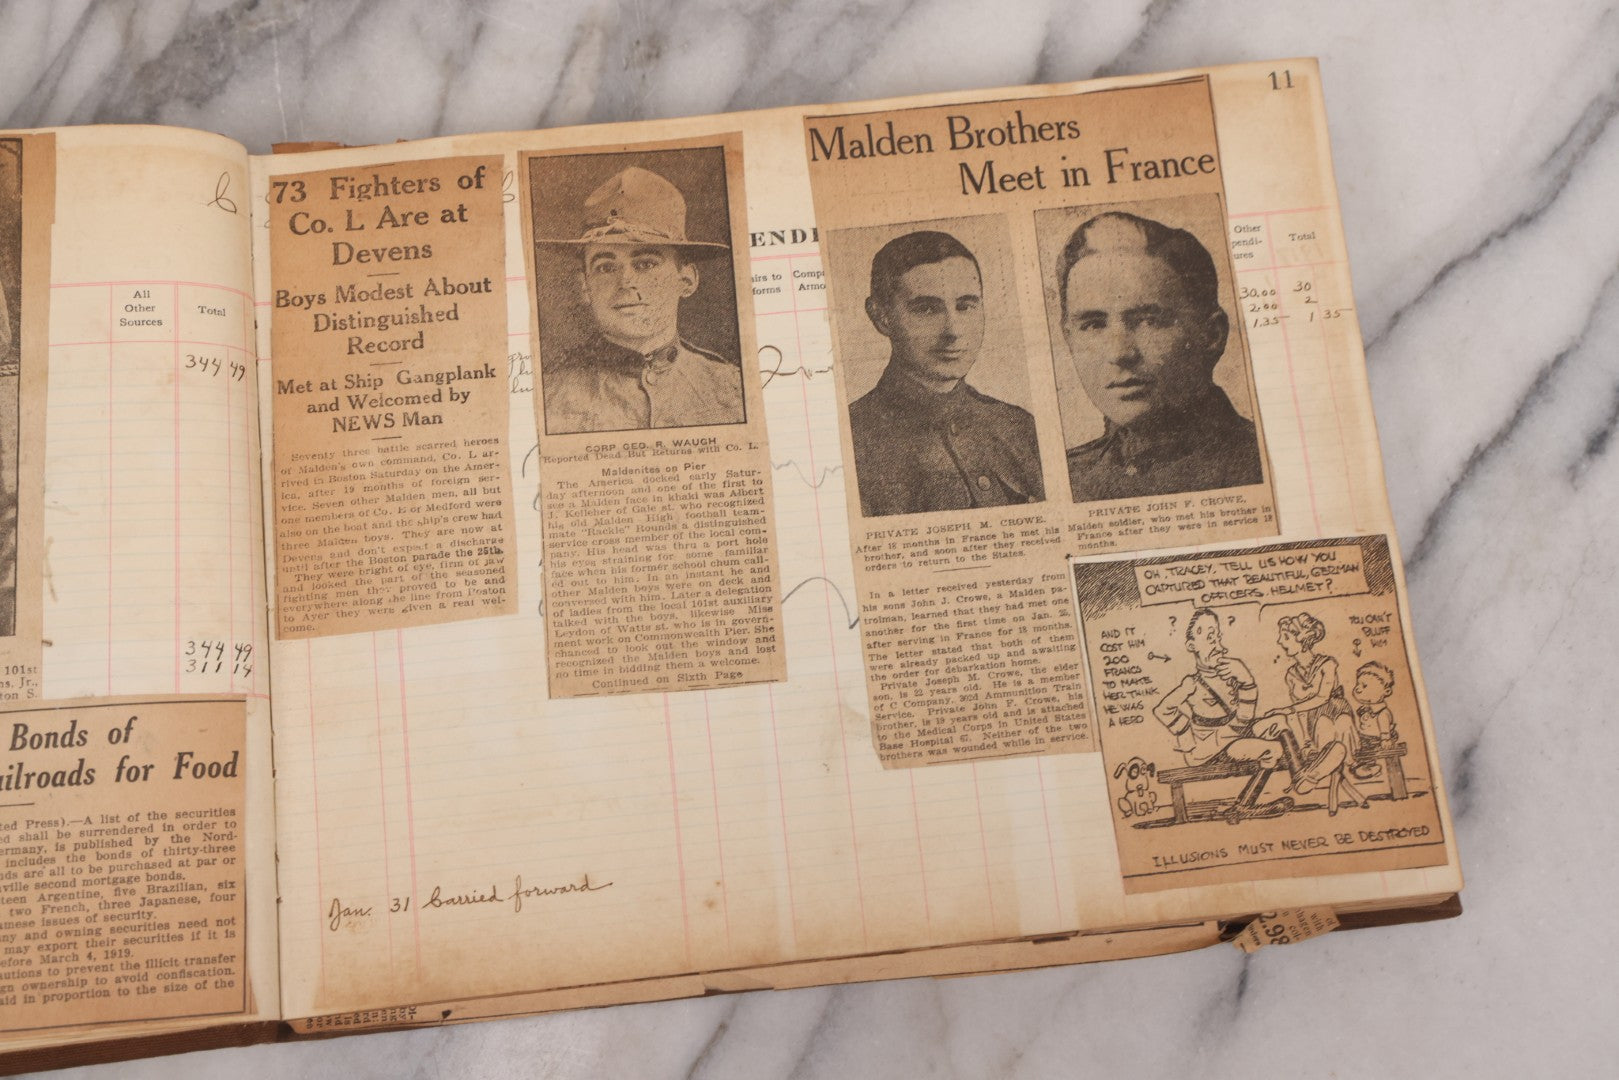 All
Other
Sources
Total
344 49
344 49
311 14
101st
ns. Jr.,
ton S.
Bonds of
ailroads for Food
ted Press).—A list of the securities
ed shall be surrendered in order to
ermany, is published by the Nord-
includes the bonds of thirty-three
nds are all to be purchased at par or
ville second mortgage bonds.
teen Argentine, five Brazilian, six
two French, three Japanese, four
amese issues of security.
ny and owning securities need not
may export their securities if it is
efore March 4, 1919.
autions to prevent the illicit transfer
gn ownership to avoid confiscation.
aid in proportion to the size of the
11
73 Fighters of
Co. L Are at
Devens
Boys Modest About
Distinguished
Record
Met at Ship Gangplank
and Welcomed by
NEWS Man
Seventy three battle scarred heroes
of Malden's own command, Co. L ar-
rived in Boston Saturday on the Amer-
ica, after 19 months of foreign ser-
vice. Seven other Malden men, all but
one members of Co. E of Medford were
also on the boat and the ship's crew had
three Malden boys. They are now at
Devens and don't expect a discharge
until after the Boston parade the 25th.
They were bright of eye, firm of jaw
and looked the part of the seasoned
fighting men they proved to be and
everywhere along the line from Boston
to Ayer they were given a real wel-
come.
CORP GEO. R. WAUGH
Reported Dead But Returns with Co. L.
Maldenites on Pier
The America docked early Satur-
day afternoon and one of the first to
see a Malden face in khaki was Albert
J. Kelleher of Gale st. who recognized
his old Malden High football team-
mate "Rackle" Rounds a distinguished
service cross member of the local com-
pany. His head was thru a port hole
his eyes straining for some familiar
face when his former school chum call-
ed out to him. In an instant he and
other Malden boys were on deck and
conversed with him. Later a delegation
of ladies from the local 101st auxiliary
talked with the boys, likewise Miss
Leydon of Watts st. who is in govern-
ment work on Commonwealth Pier. She
chanced to look out the window and
recognized the Malden boys and lost
no time in bidding them a welcome.
Continued on Sixth Page
ENDI
airs to
forms
Comp
Armo
Malden Brothers
Meet in France
PRIVATE JOSEPH M. CROWE.
After 18 months in France he met his
brother, and soon after they received
orders to return to the States.
PRIVATE JOHN F. CROWE.
Malden soldier, who met his brother in
France after they were in service 18
months.
In a letter received yesterday from
his sons John J. Crowe, a Malden pa-
trolman, learned that they had met one
another for the first time on Jan. 25,
after serving in France for 18 months.
The letter stated that both of them
were already packed up and awaiting
the order for debarkation home.
Private Joseph M. Crowe, the elder
son, is 22 years old. He is a member
of C Company, 302d Ammunition Train
Service. Private John F. Crowe, his
brother, is 19 years old and is attached
to the Medical Corps in United States
Base Hospital 67. Neither of the two
brothers was wounded while in service.
Other
pendi-
ures
Total
30.00 30
2.00 2
1.35 1 35
OH, TRACEY, TELL US HOW YOU
CAPTURED THAT BEAUTIFUL, GERMAN
OFFICERS HELMET?
AND IT
COST HIM
200
FRANCS
TO MAKE
HER THINK
HE WAS
A HERO
? ?
YOU CAN'T
BLUFF
HIM
ILLUSIONS MUST NEVER BE DESTROYED
Jan. 31 Carried forward
2.98